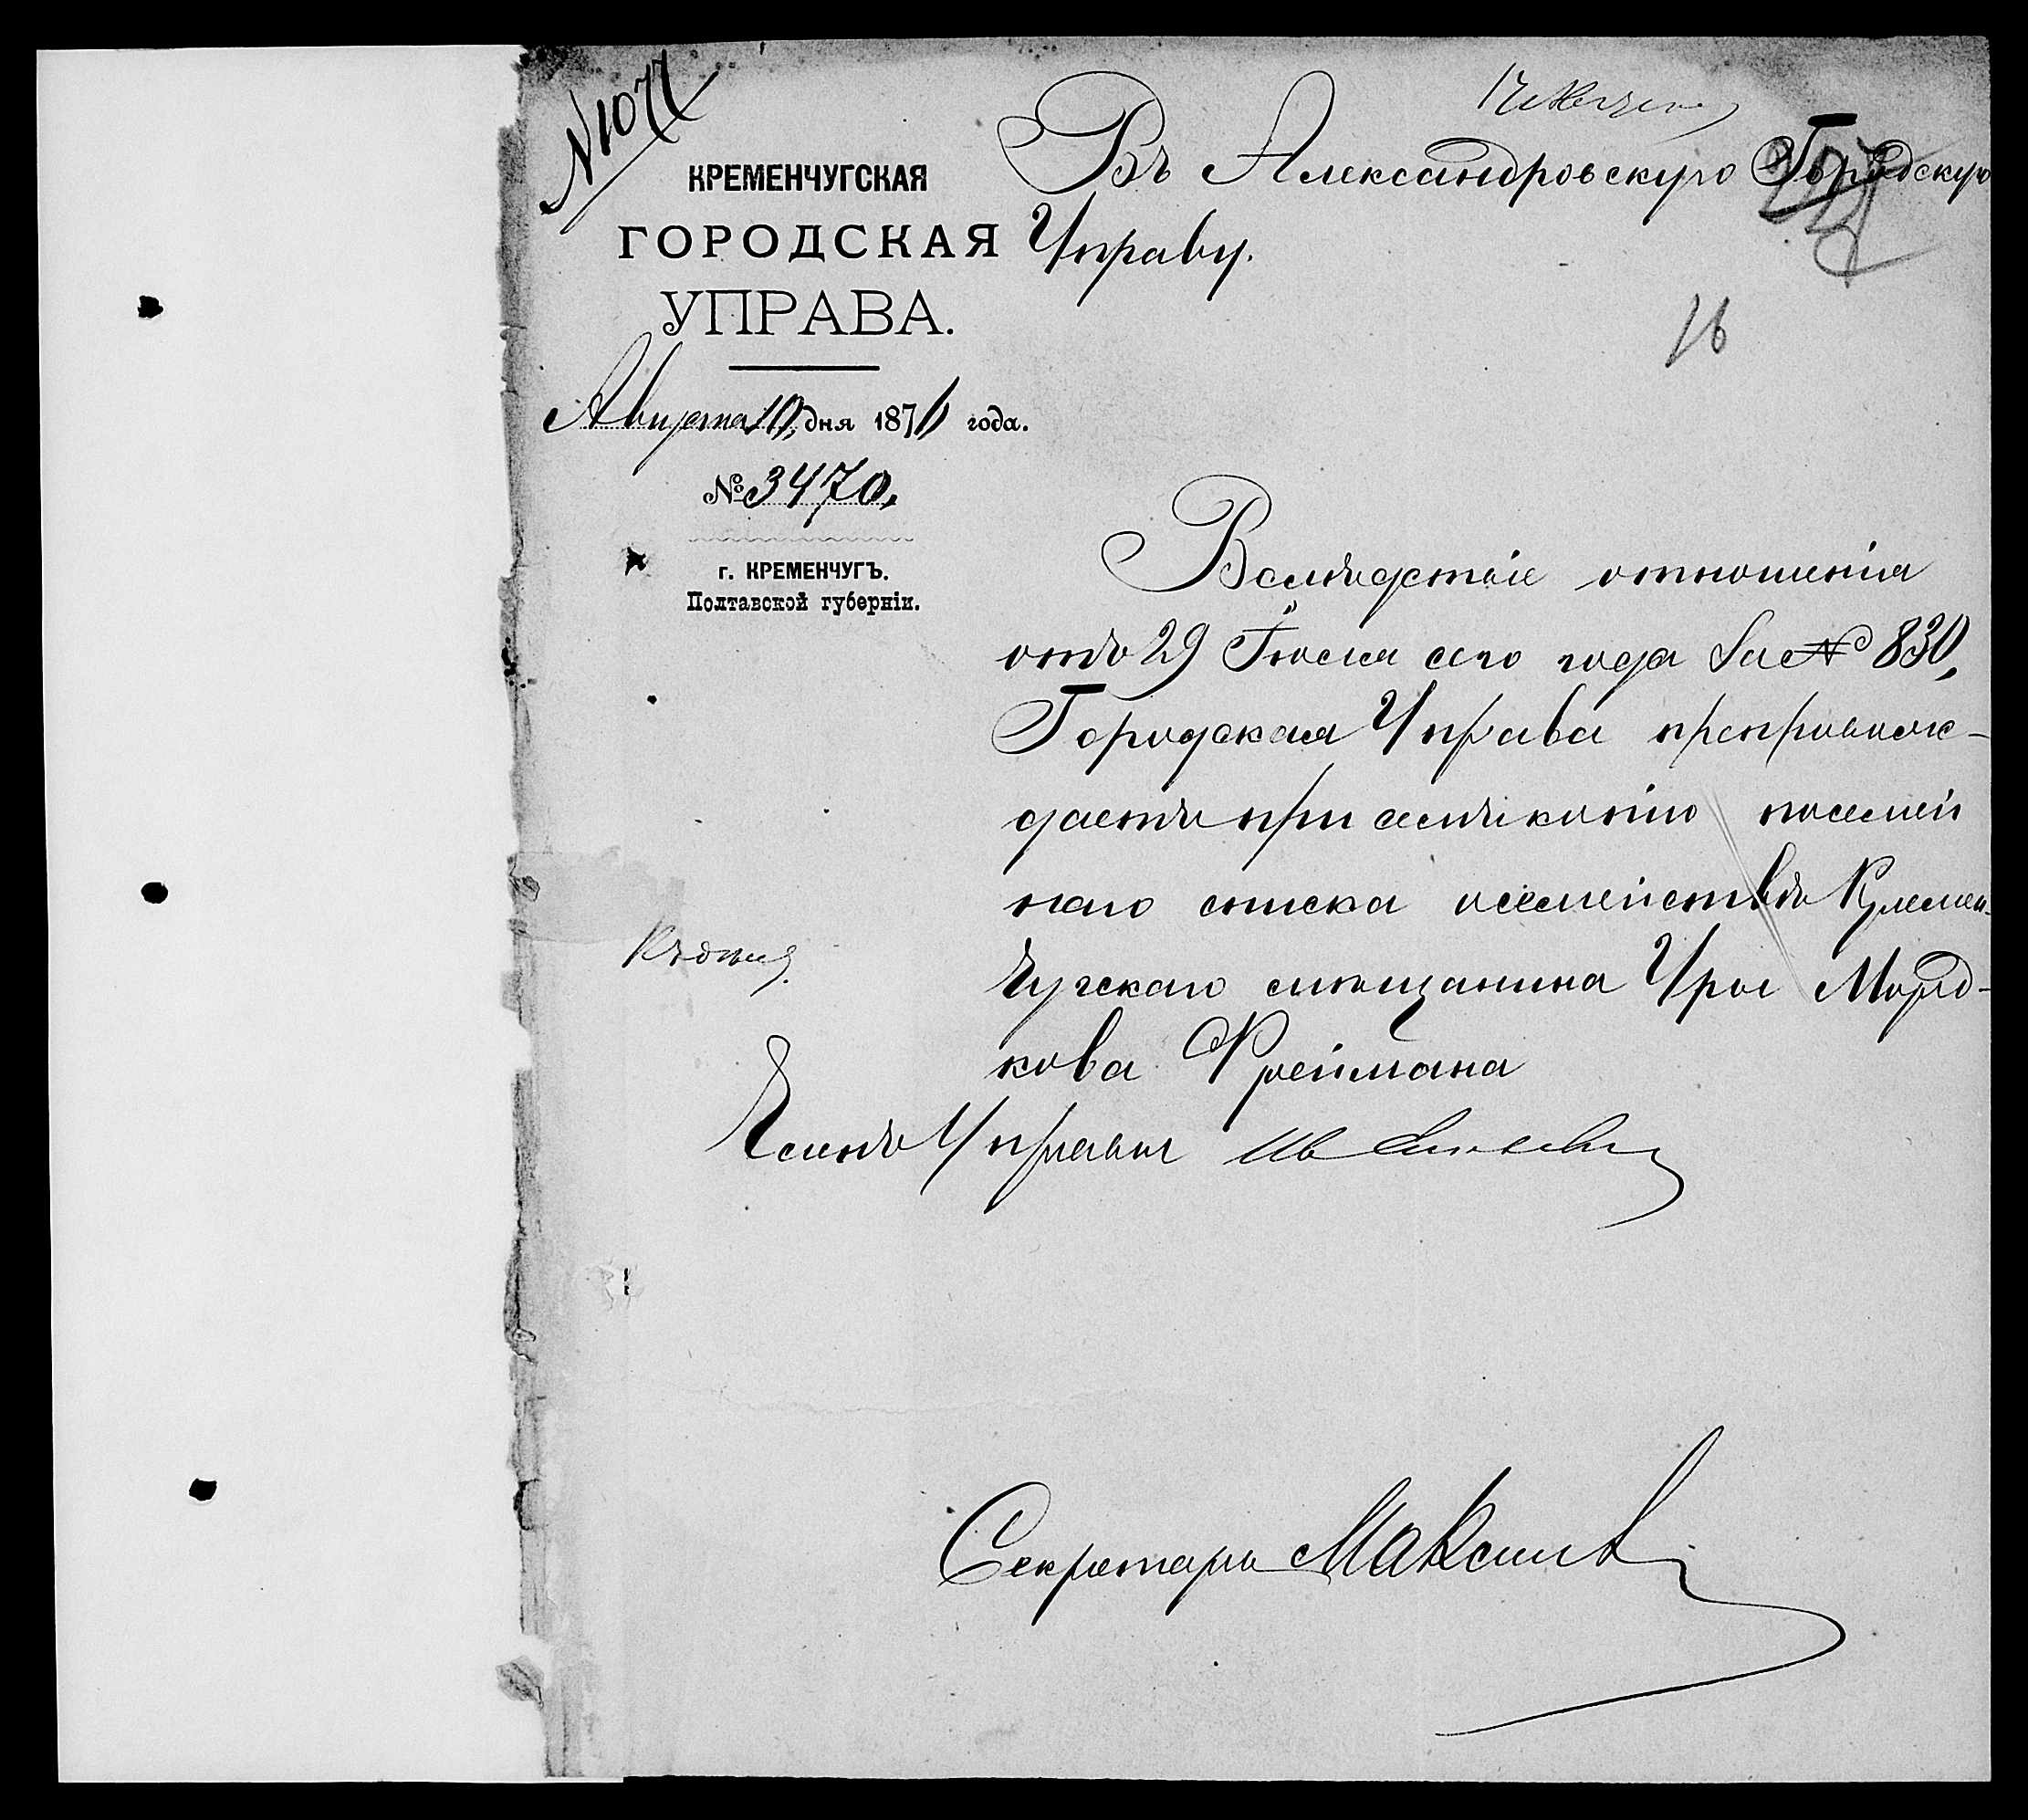 №1077
КРЕМЕНЧУГСКАЯ
ГОРОДСКАЯ
УПРАВА.
Августа 10 дня 1876 года.
№ 3470.
г. КРЕМЕНЧУГЪ.
Полтавской губерніи.
Въ Александровскую Городскую
Управу.
16
Вслѣдствіе отношенія
отъ 29 Іюля сего года за № 830,
Городская Управа препровож-
даетъ при семъ копію посемей
наго списка о семействѣ Кремен-
чугскаго мѣщанина Урія Морд-
кова Фреймана
Къ дѣлу.
Членъ Управы
Секретарь